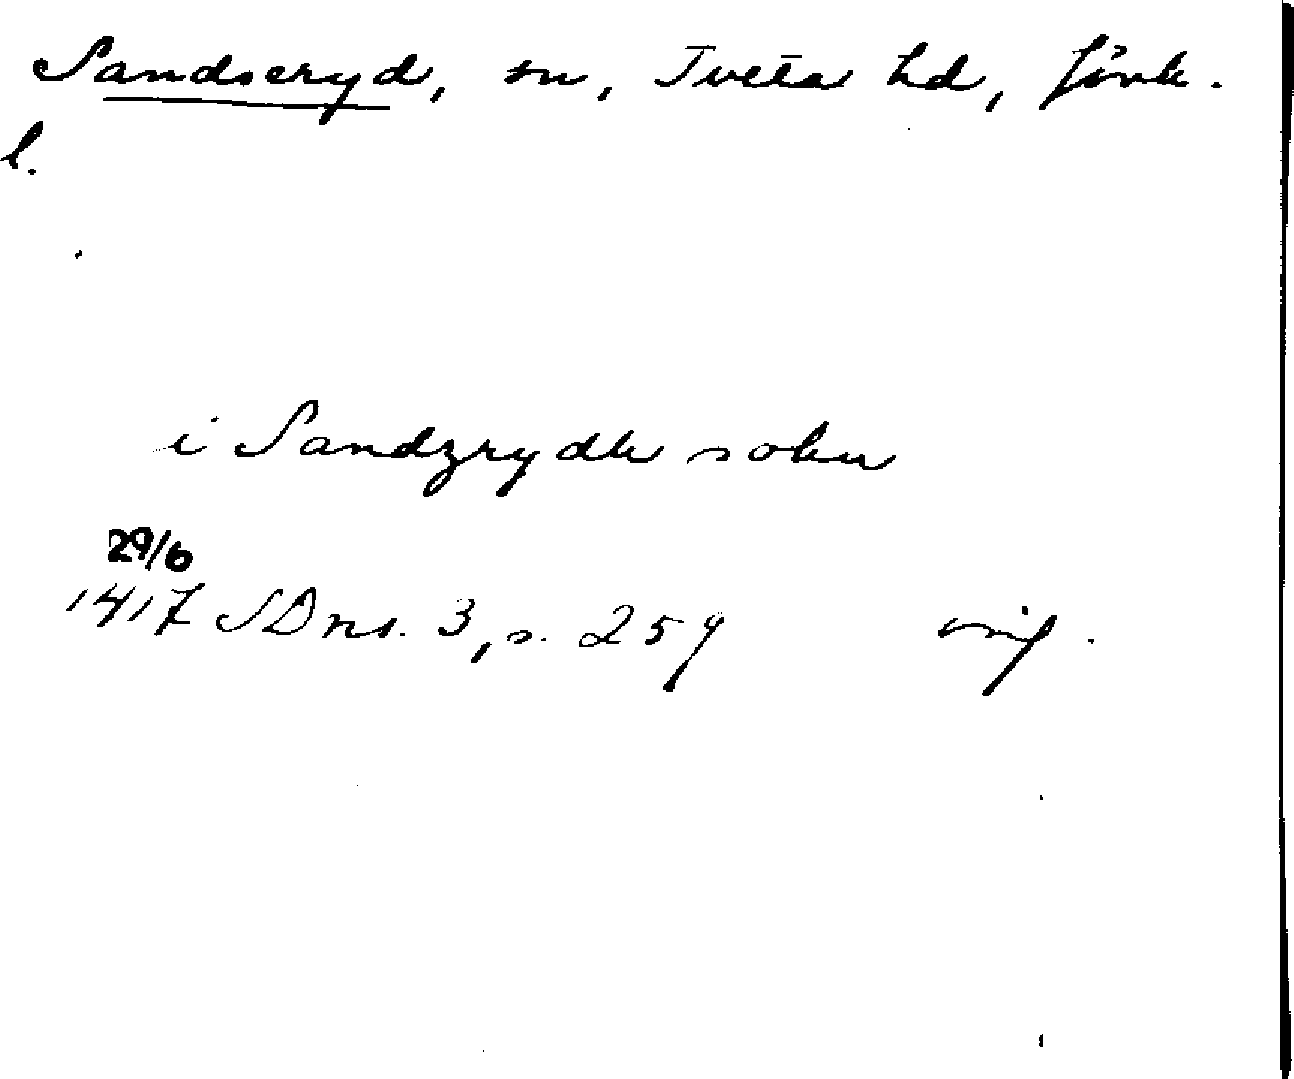 Sandseryd, sn, Tveta hd, Jönk.
l.
i Sandzrydh sokn
29/6
1417 SDns. 3, s. 259 orig.